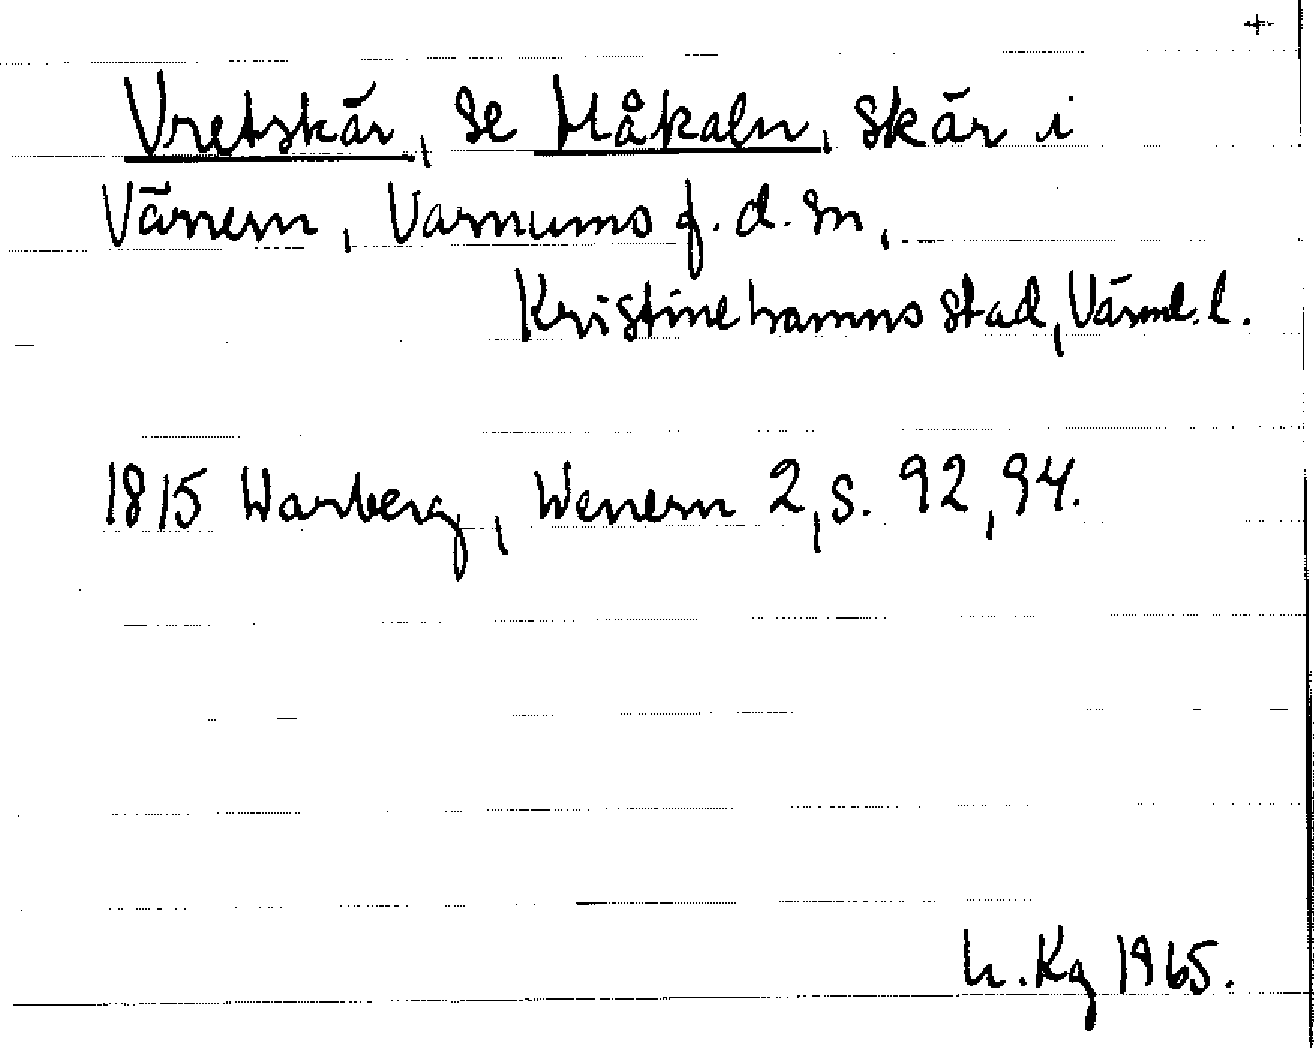 +
Vretskär, se Måkaln, skär i
Vänern, Varnums f.d. sn,
Kristinehamns stad, Värml. l.
1815 Warberg, Wenern 2, s. 92, 94.
h. Kg 1965.